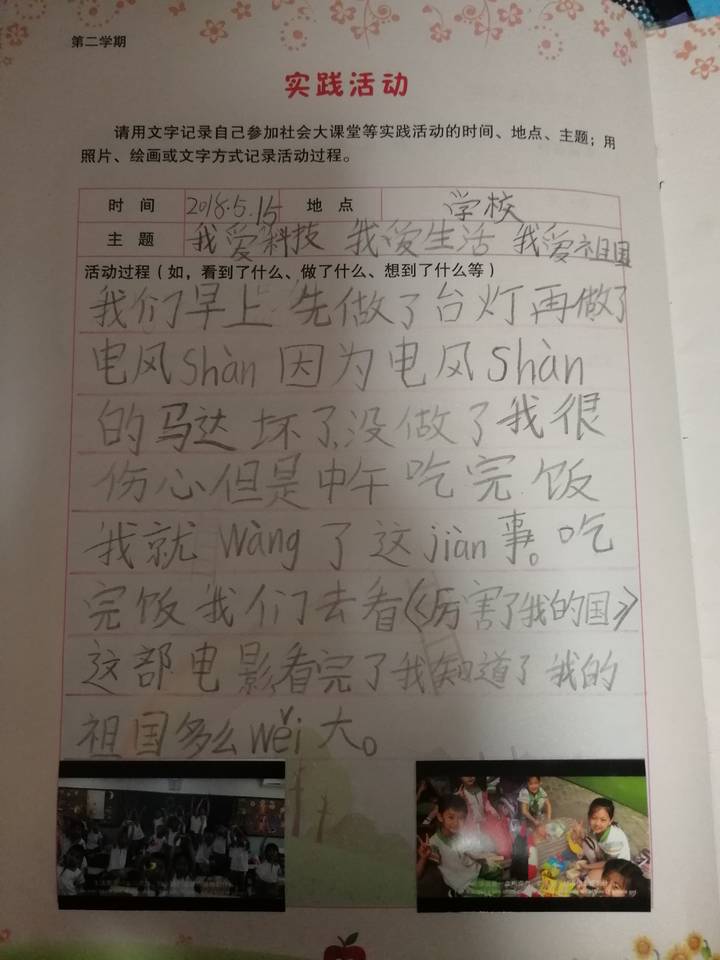 第二学期
实践活动
请用文字记录自己参加社会大课堂等实践活动的时间、地点、主题；用
照片、绘画或文字方式记录活动过程。
时 间 2018.5.15 地 点 学校
主 题 我爱科技 我爱生活 我爱祖国
活动过程（如，看到了什么、做了什么、想到了什么等）
我们早上先做了台灯再做了
电风shàn因为电风shàn
的马达坏了没做了我很
伤心但是中午吃完饭
我就wàng了这jiàn事。吃
完饭我们去看《厉害了我的国》
这部电影看完了我知道了我的
祖国多么wěi大。